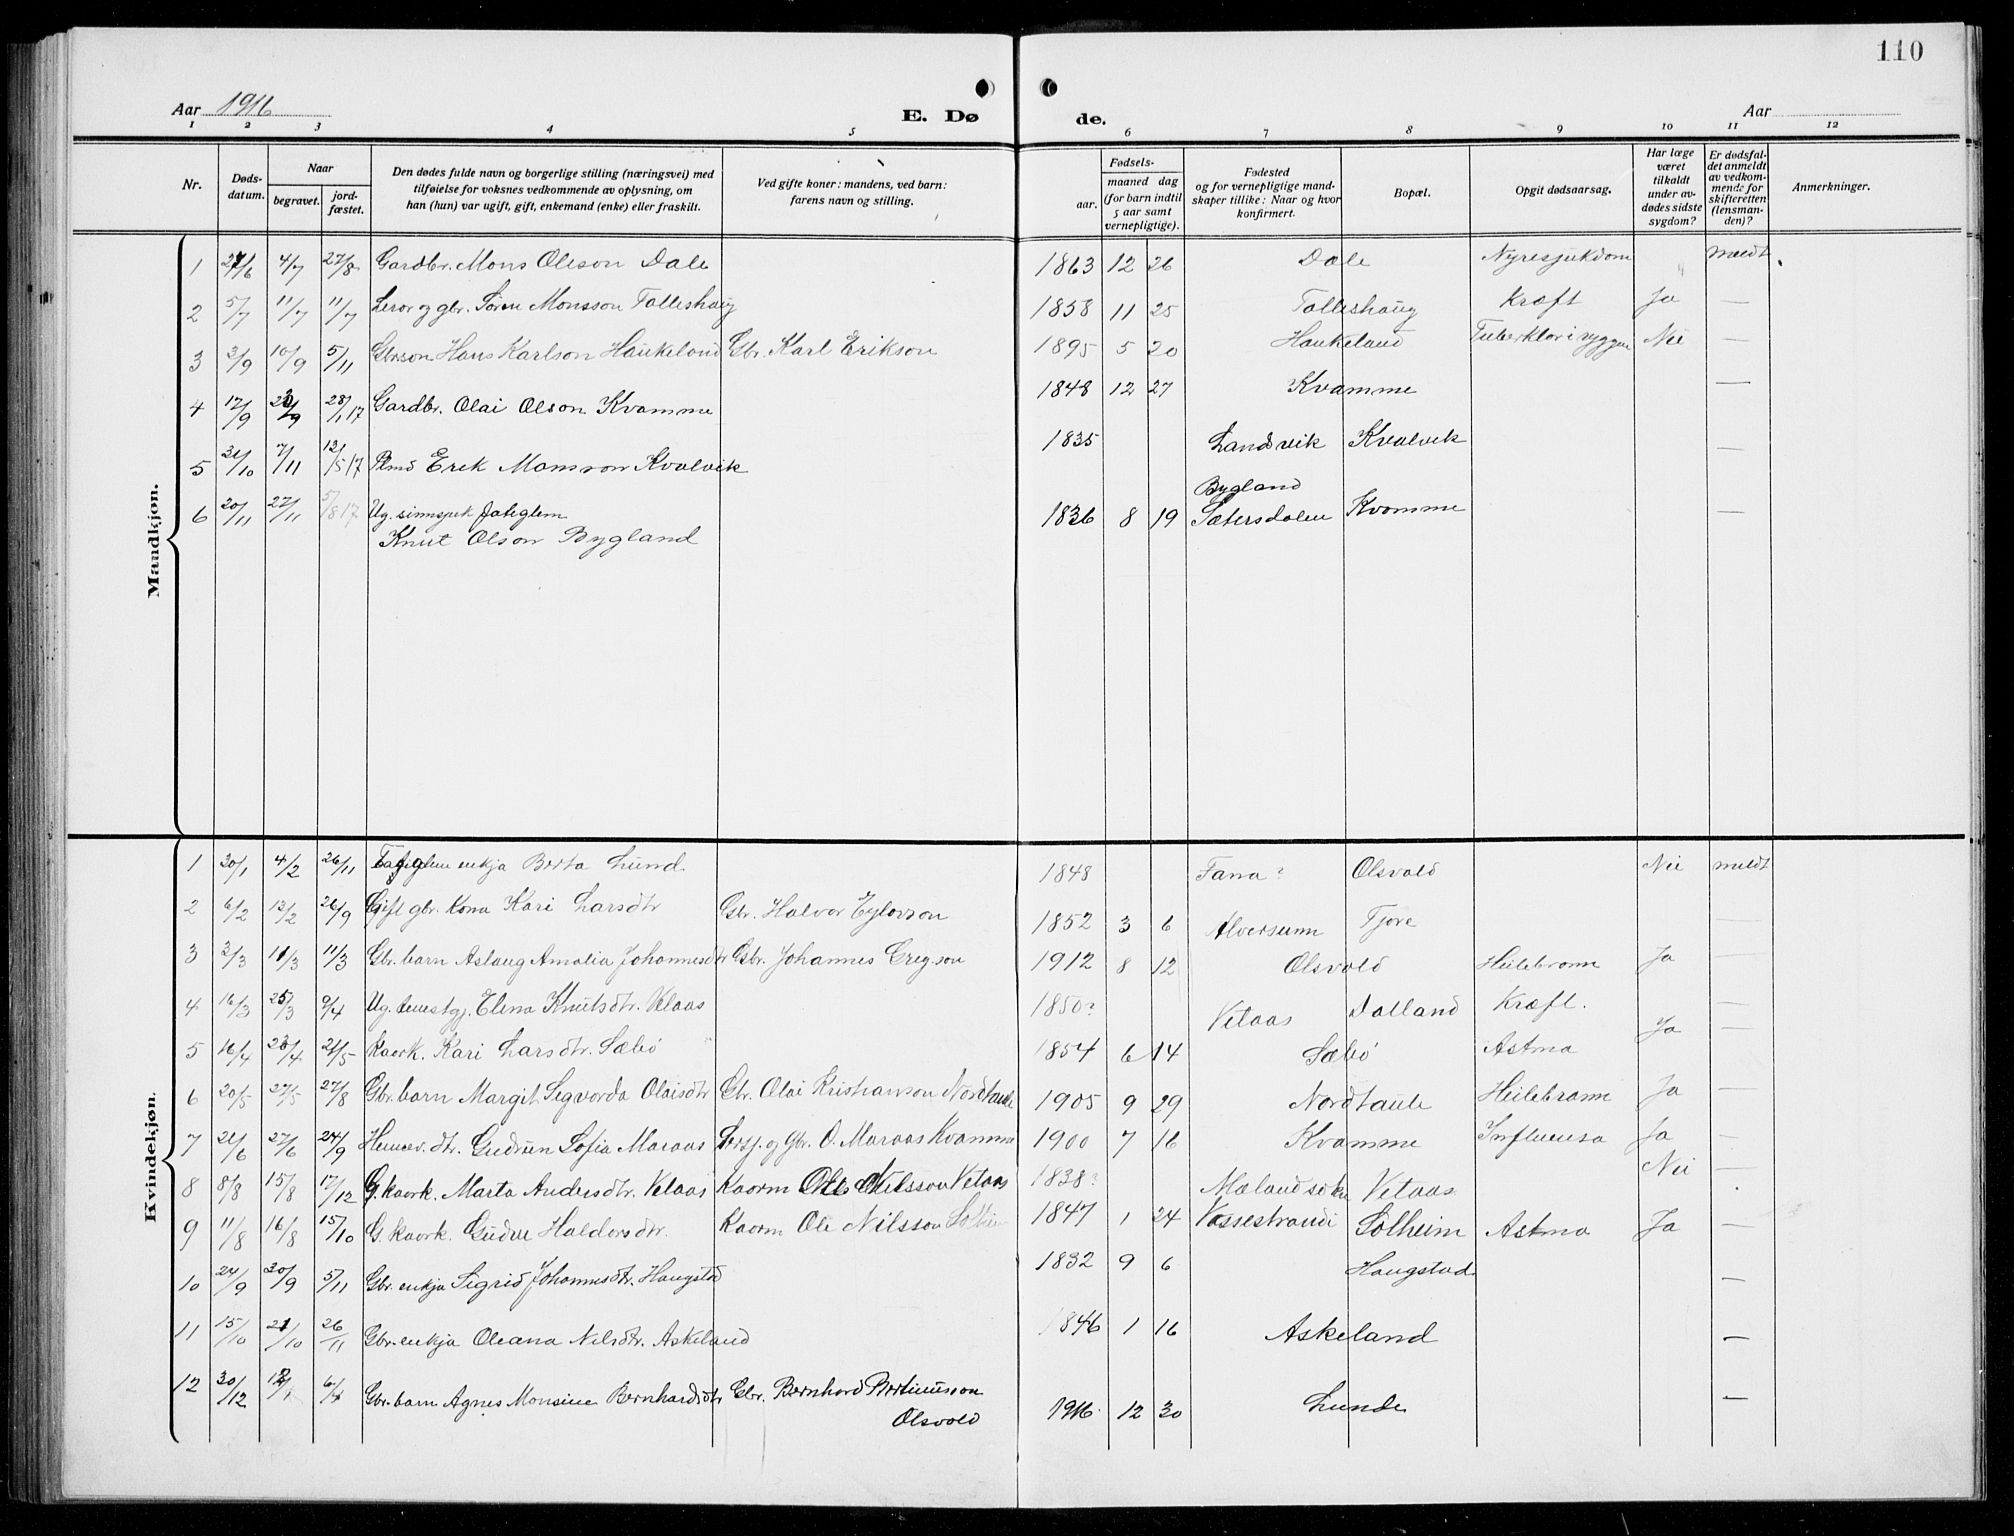 110
Aar 1916
E. Dø
de.
Aar
1 2 3 4 5 6 7 8 9 10 11 12
Nr.
Døds-
datum.
Naar
begravet.
jord-
fæstet.
Den dødes fulde navn og borgerlige stilling (næringsvei) med
tilføielse for voksnes vedkommende av oplysning, om
han (hun) var ugift, gift, enkemand (enke) eller fraskilt.
Ved gifte koner: mandens, ved barn:
farens navn og stilling.
Fødsels-
aar.
maaned dag
(for barn indtil
5 aar samt
vernepligtige).
Fødested
og for vernepligtige mand-
skaper tillike: Naar og hvor
konfirmert.
Bopæl.
Opgit dødsaarsag.
Har læge
været
tilkaldt
under av-
dødes sidste
sygdom?
Er dødsfal-
det anmeldt
av vedkom-
mende for
skifteretten
(lensman-
den)?
Anmerkninger.
Mandkjøn.
1 4/7 27/8 Gardbr. Mons Oleson Dale 1863 12 26 Dale Nyresjukdom meldt
2 5/7 11/7 11/7 Lerar og gbr. Søren Monsson Tolleshaug 1858 11 25 Tolleshaug Kræft Ja —
3 3/9 10/9 5/11 Gbrson Hans Karlson Haukeland Gbr. Karl Erikson 1895 5 20 Haukeland Tuberklar i ryggen Nei —
4 17/9 23/9 28/1 17 Gardbr. Olai Olson Kvamme 1848 12 27 Kvamme —
5 31/10 7/11 13/5 17 Erek Monsson Kvalvik 1835 Landvik Kvalvik —
6 20/11 27/11 5/8 17 Ug. sinnsjuk fatiglem
Knut Olson Bygland 1836 8 19 Bygland
Sætersdalen Kvamme —
Kvindekjøn.
1 30/1 4/2 26/11 Fatiglem enkja Berta Lund 1848 Fana? Olsvold Nei meldt
2 6/2 13/2 26/9 Gift gbr. Kona Kari Larsdtr Gbr. Halvor 1852 3 6 Alversunn Tjore —
3 3/3 11/3 11/3 Gbr. barn Aslaug Amalia Johannesdtr Gbr. Johannes Eregson 1912 8 12 Olsvold Heilebrann Ja —
4 16/3 25/3 9/4 Ug. Elena Knutsdtr. Vetaas 1850? Vetaas Dalland Kræft. —
5 16/4 23/4 21/5 Kaark. Kari Larsdtr. Sæbø 1854 6 14 Sæbø Astma Ja —
6 20/5 27/5 27/8 Gbr. barn Margit Sigvarda Olaisdtr Gbr. Olai Kristianson Nordtaule 1905 9 29 Nordtaule Heilebrann Ja —
7 21/6 27/6 24/9 Gudrun Sofia Maraas og Gbr. O. Maraas Kvamme 1900 7 16 Kvamme Influensa Ja —
8 8/8 15/8 17/12 G. kaark. Marta Andersdtr. Vetaas Kaarm Ole Nilsson Vetaas 1838? Mælandsokn Vetaas Nei —
9 11/8 16/8 15/10 G. kaark. Gudve Haldorsdtr. Kaarm Ole Nilsson Solheim 1847 1 24 Vossestrand Solheim Astma Ja —
10 24/9 30/9 5/11 Gbr. enkja Sigrid Johannesdtr. Haugstad 1832 9 6 Haugstad —
11 15/10 21/10 26/11 Gbr. enkja Oleana Nilsdtr. Askeland 1846 1 16 Askeland —
12 30/12 6/4 Gbr. barn Agnes Monsine Bernhardsdtr Gbr. Bernhard Bertinusson
Olsvold 1916 12 30 Lunde —